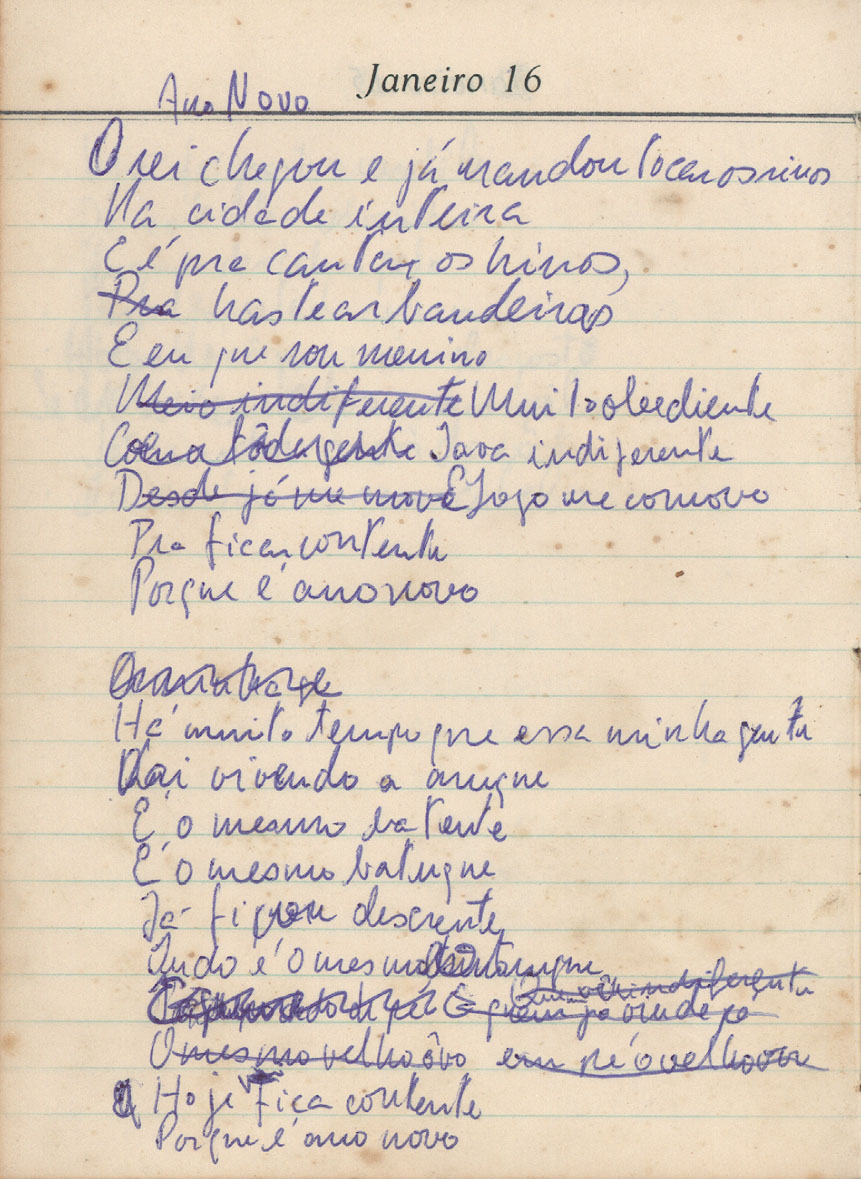 Janeiro 16
Ano Novo
O rei chegou e já mandou tocar os sinos
Na cidade inteira
E é pra cantar os hinos,
Pra hastear bandeiras
E eu que sou menino
Meio indiferente Muito obediente
Como toda gente Tava indiferente
Desde já me movo E logo me comovo
Pra ficar contente
Porque é ano novo
Há muito tempo que essa minha gente
Vai vivendo a muque
É o mesmo batente
É o mesmo batuque
Já ficou descrente
Tudo é o mesmo truque
indiferente
quem já
O mesmo velho ôvo em pé o velho ovo
Q Hoje fica contente
Porque é ano novo